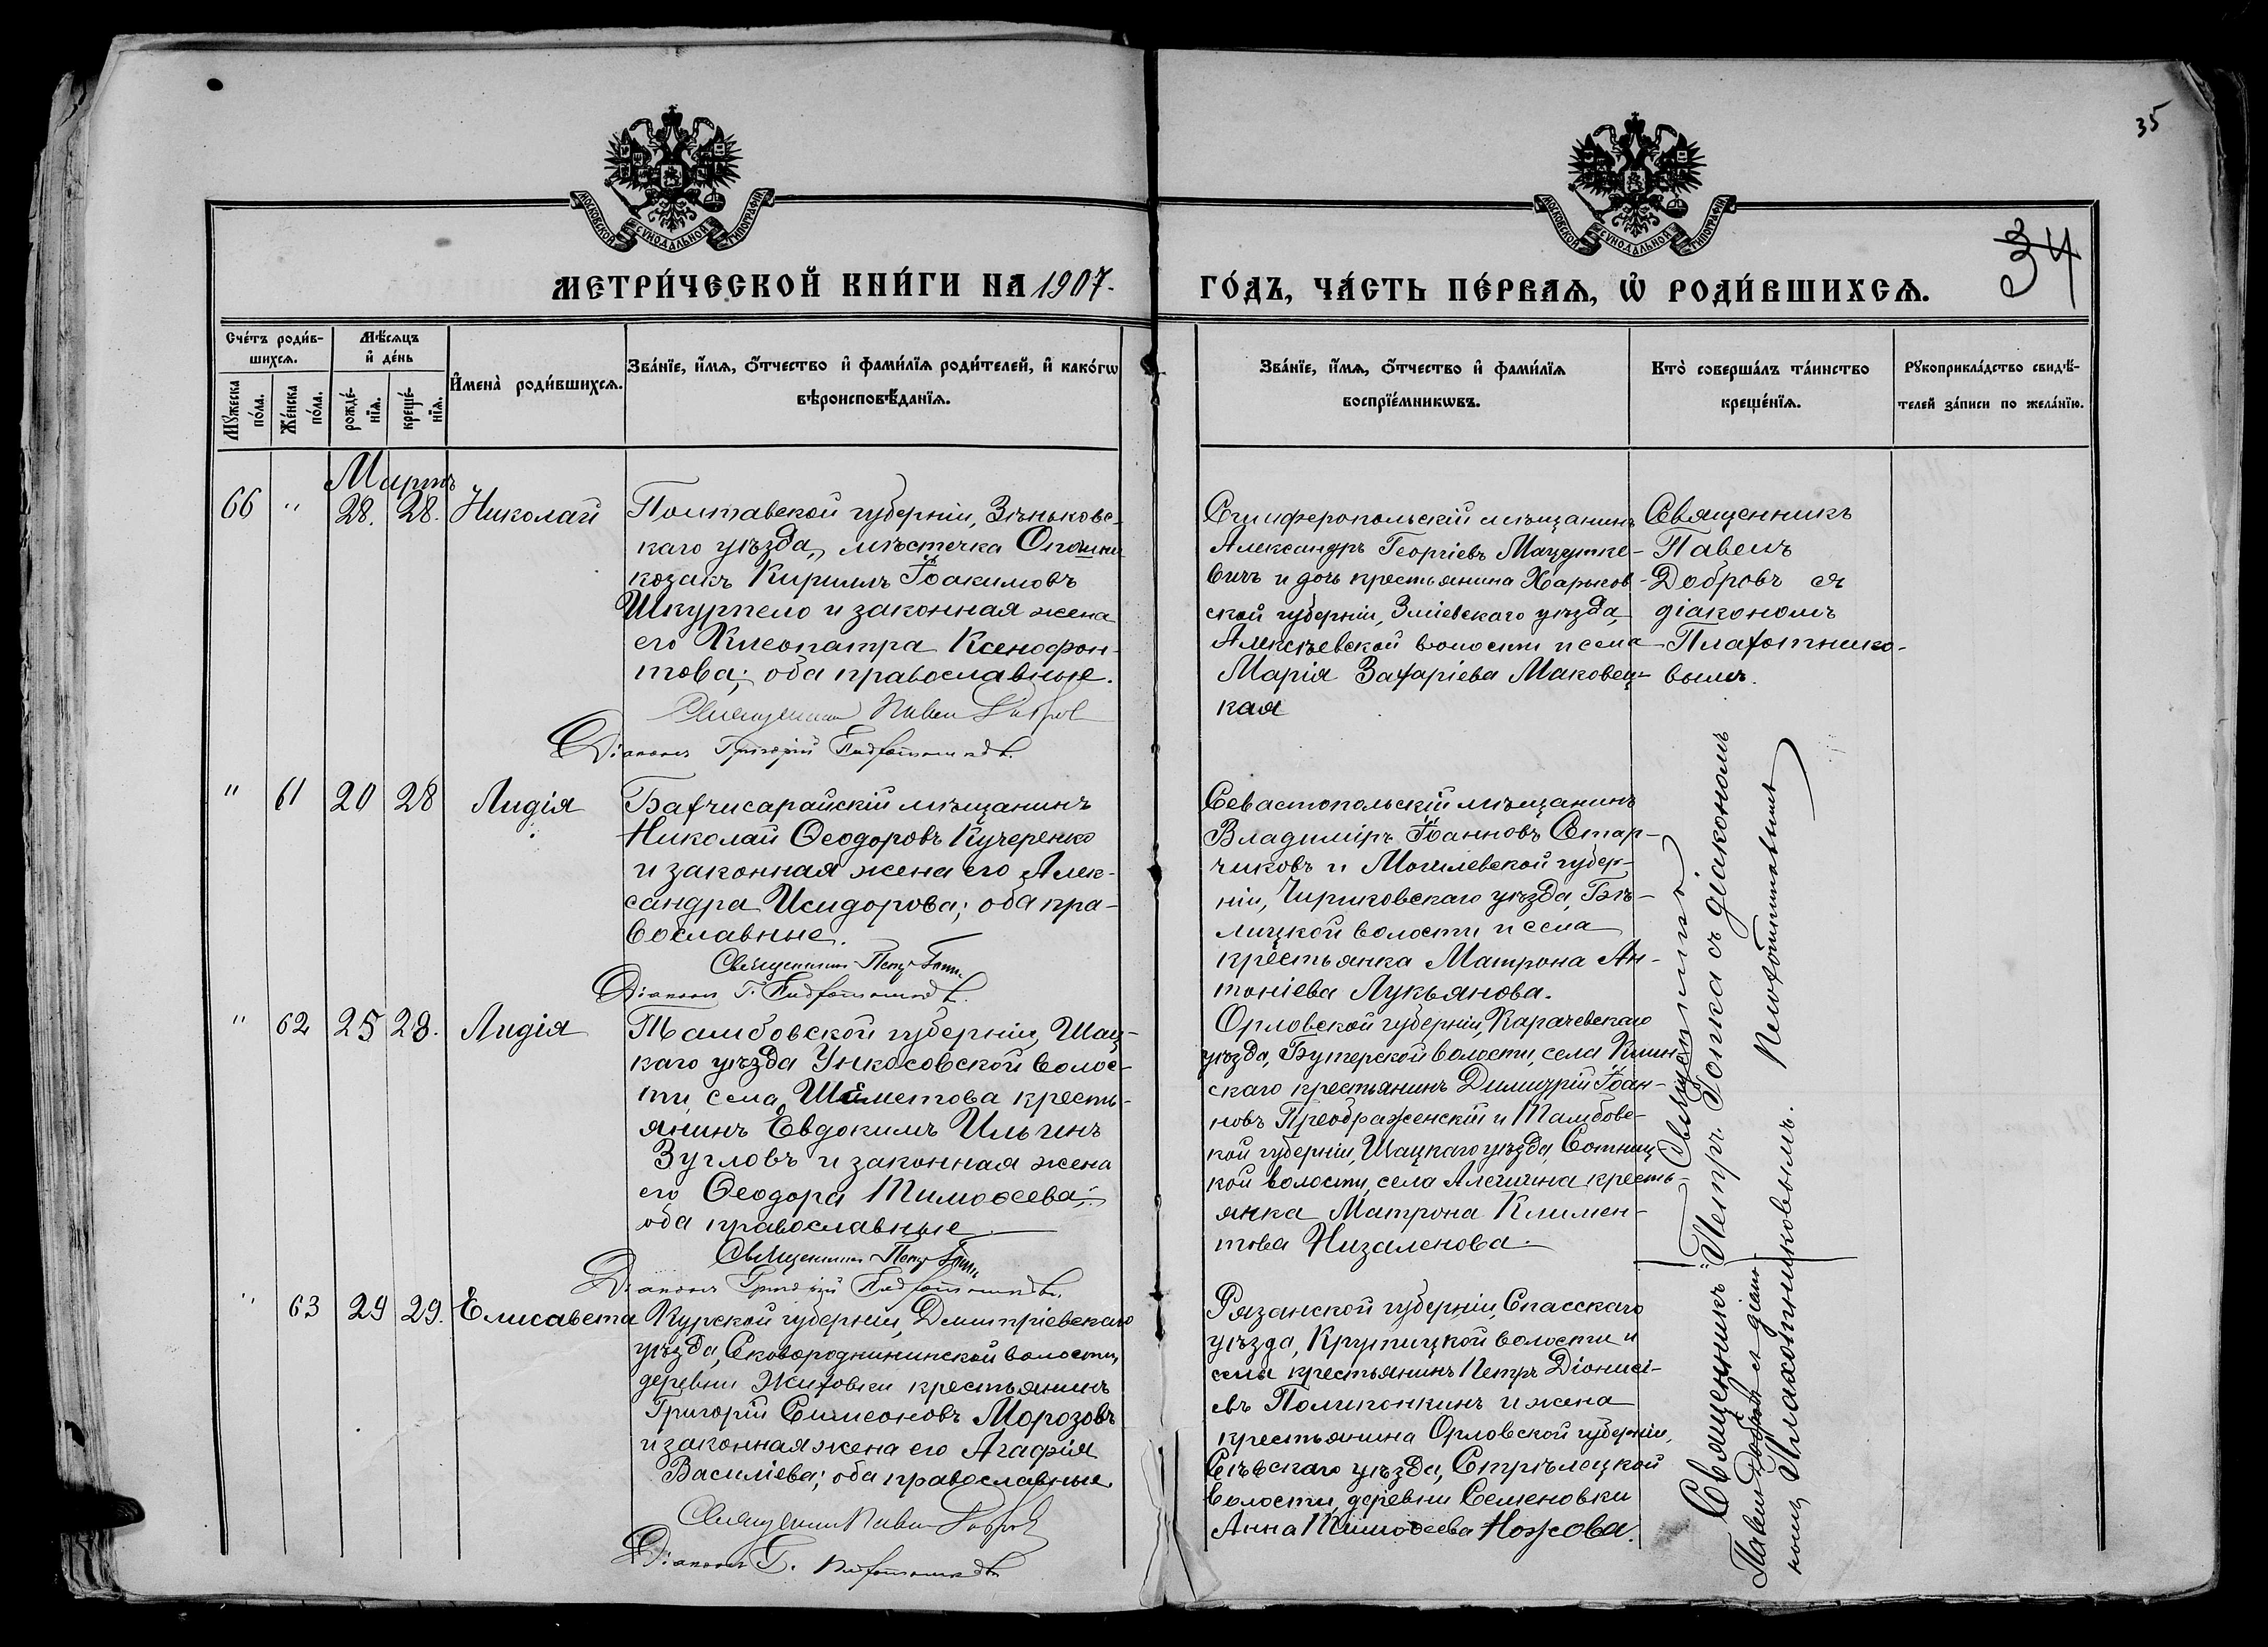 35
34
МОСКОВСКОЙ СУНОДАЛЬНОЙ ТИПОГРАФІИ
МЕТРИ́ЧЕСКОЙ КНИ́ГИ НА 1907.
МОСКОВСКОЙ СУНОДАЛЬНОЙ ТИПОГРАФІИ
ГО́ДЪ, ЧА́СТЬ ПЕ́РВАѦ, Ѡ҆ РОДИ́ВШИХСѦ.
Сче́тъ роди́в-
шихсѧ.
Мꙋ́жеска
по́ла.
Же́нска
по́ла.
Мѣ́сѧцъ
и҆ де́нь
рожде́-
нїѧ.
креще́-
нїѧ.
И҆мена̀ роди́вшихсѧ.
Зва́нїе, и҆́мѧ, ѻ҆́тчество и҆ фами́лїѧ роди́телей, и҆ како́гѡ
вѣроисповѣ́данїѧ.
Зва́нїе, и҆́мѧ, ѻ҆́тчество и҆ фами́лїѧ
воспрїе́мникѡвъ.
Кто̀ соверша́лъ та́инство
креще́нїѧ.
Рꙋкоприкла́дство свидѣ́-
телей за́писи по жела́нїю.
Мартъ
66 " 28. 28. Николай
Полтавской губерніи, Зѣньковс-
каго уѣзда, мѣстечка Опошни
козакъ Кириллъ Іоакимовъ
Шкурпело и законная жена
его Клеопатра Ксенофон-
това; оба православные.
Священникъ Павелъ Добровъ
Діаконъ Григорій Плахотниковъ.
Симферопольскій мѣщанинъ
Александръ Георгіевъ Мацутке-
вичъ и дочь крестьянина Харьков-
ской губерніи, Зміевскаго уѣзда,
Алексѣевской волости и села
Марія Захаріева Маковец-
кая
Священникъ
Павелъ
Добровъ съ
діакономъ
Плахотнико-
вымъ.
" 61 20 28 Лидія
Бахчисарайскій мѣщанинъ
Николай Ѳеодоровъ Кучеренко
и законная жена его Алек-
сандра Исидорова; оба пра-
вославные.
Священникъ Петръ
Діаконъ Г. Плахотниковъ.
Севастопольскій мѣщанинъ
Владиміръ Іоанновъ Стар-
чиковъ и Могилевской губер-
ніи, Чириковскаго уѣзда, Бѣ-
лицкой волости и села
крестьянка Матрона Ан-
тоніева Лукьянова.
" 62 25 28. Лидія
Тамбовской губерніи, Шац-
каго уѣзда Ункосовской волос-
ти, села Шеметова кресть-
янинъ Евдокимъ Ильинъ
Зугловъ и законная жена
его Ѳеодора Тимоѳеева;
оба православные
Священникъ Петръ
Діаконъ Григорій Плахотниковъ.
Орловской губерніи, Карачевскаго
уѣзда, Бутерской волости, села Клин-
скаго крестьянинъ Димитрій Іоан-
новъ Преображенскій и Тамбовс-
кой губерніи, Шацкаго уѣзда, Сотниц-
кой волости, села Алешина кресть-
янка Матрона Климен-
това Низаленова.
Петръ съ діакономъ
Плахотниковымъ
" 63 29 29. Елисавета
Курской губерніи, Дмитріевскаго
уѣзда, Сковороднинской волости,
деревни Жиховки крестьянинъ
Григорій Симеоновъ Морозовъ
и законная жена его Агафія
Василіева; оба православные.
Священникъ Павелъ Добровъ
Діаконъ Г. Плахотниковъ
Рязанской губерніи, Спасскаго
уѣзда, Крутицкой волости и
села крестьянинъ Петръ Діонисі-
евъ Поликонкинъ и жена
крестьянина Орловской губерніи,
Сѣвскаго уѣзда, Стрѣлецкой
волости, деревни Семеновки
Анна Тимоѳеева Ножова.
Священникъ
Павелъ Добровъ съ діако-
номъ Плахотниковымъ.